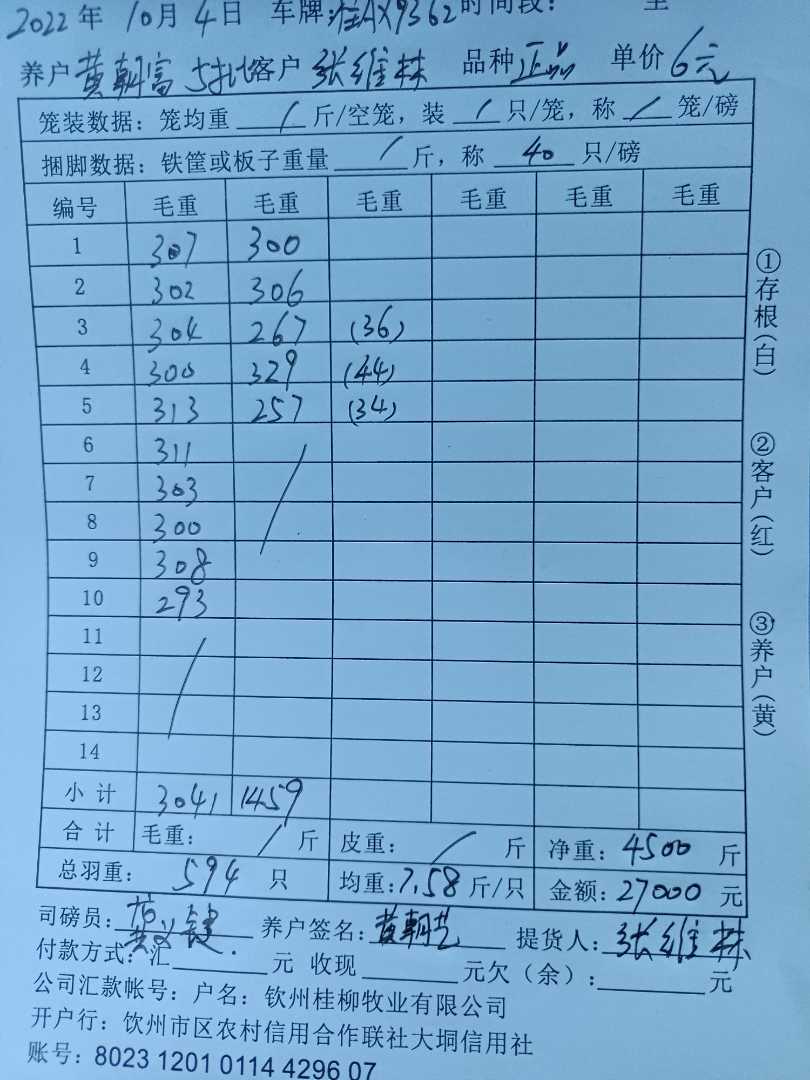 2022年 10月 4日 车牌:桂AX9362时间段: 至
养户 黄朝富 5批客户 张维林 品种 正品 单价 6元
笼装数据：笼均重 / 斤/空笼，装 / 只/笼，称 / 笼/磅
捆脚数据：铁筐或板子重量 / 斤，称 40 只/磅
编号 毛重 毛重 毛重 毛重 毛重 毛重
1 307 300
2 302 306
3 304 267 (36)
4 300 329 (44)
5 313 257 (34)
6 311
7 303
8 300
9 308
10 293
11
12
13
14
小计 3041 1459
合计 毛重： / 斤 皮重： / 斤 净重：4500 斤
总羽重： 594 只 均重：7.58 斤/只 金额：27000 元
司磅员： 养户签名：黄朝 提货人：张维林
付款方式：汇 元 收现 元欠（余）： 元
公司汇款帐号：户名：钦州桂柳牧业有限公司
开户行：钦州市区农村信用合作联社大垌信用社
账号：8023 1201 0114 4296 07
①存根(白)
②客户(红)
③养户(黄)